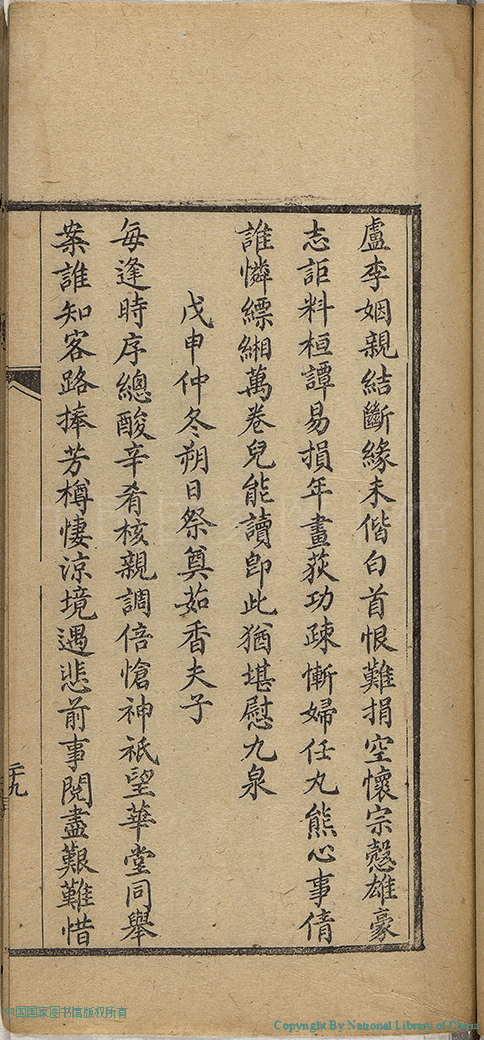 盧李姻親結斷緣未偕白首恨難捐空懷宗愨雄豪
志詎料桓譚易損年畫荻功疎慚婦任丸熊心事倩
誰憐縹緗萬卷兒能讀即此猶堪慰九泉
戊申仲冬朔日祭奠茹香夫子
每逢時序總酸辛肴核親調倍愴神祇望華堂同舉
案誰知客路捧芳樽悽涼境遇悲前事閱盡艱難惜
二十九
中国国家图书馆版权所有
Copyright By National Library of China